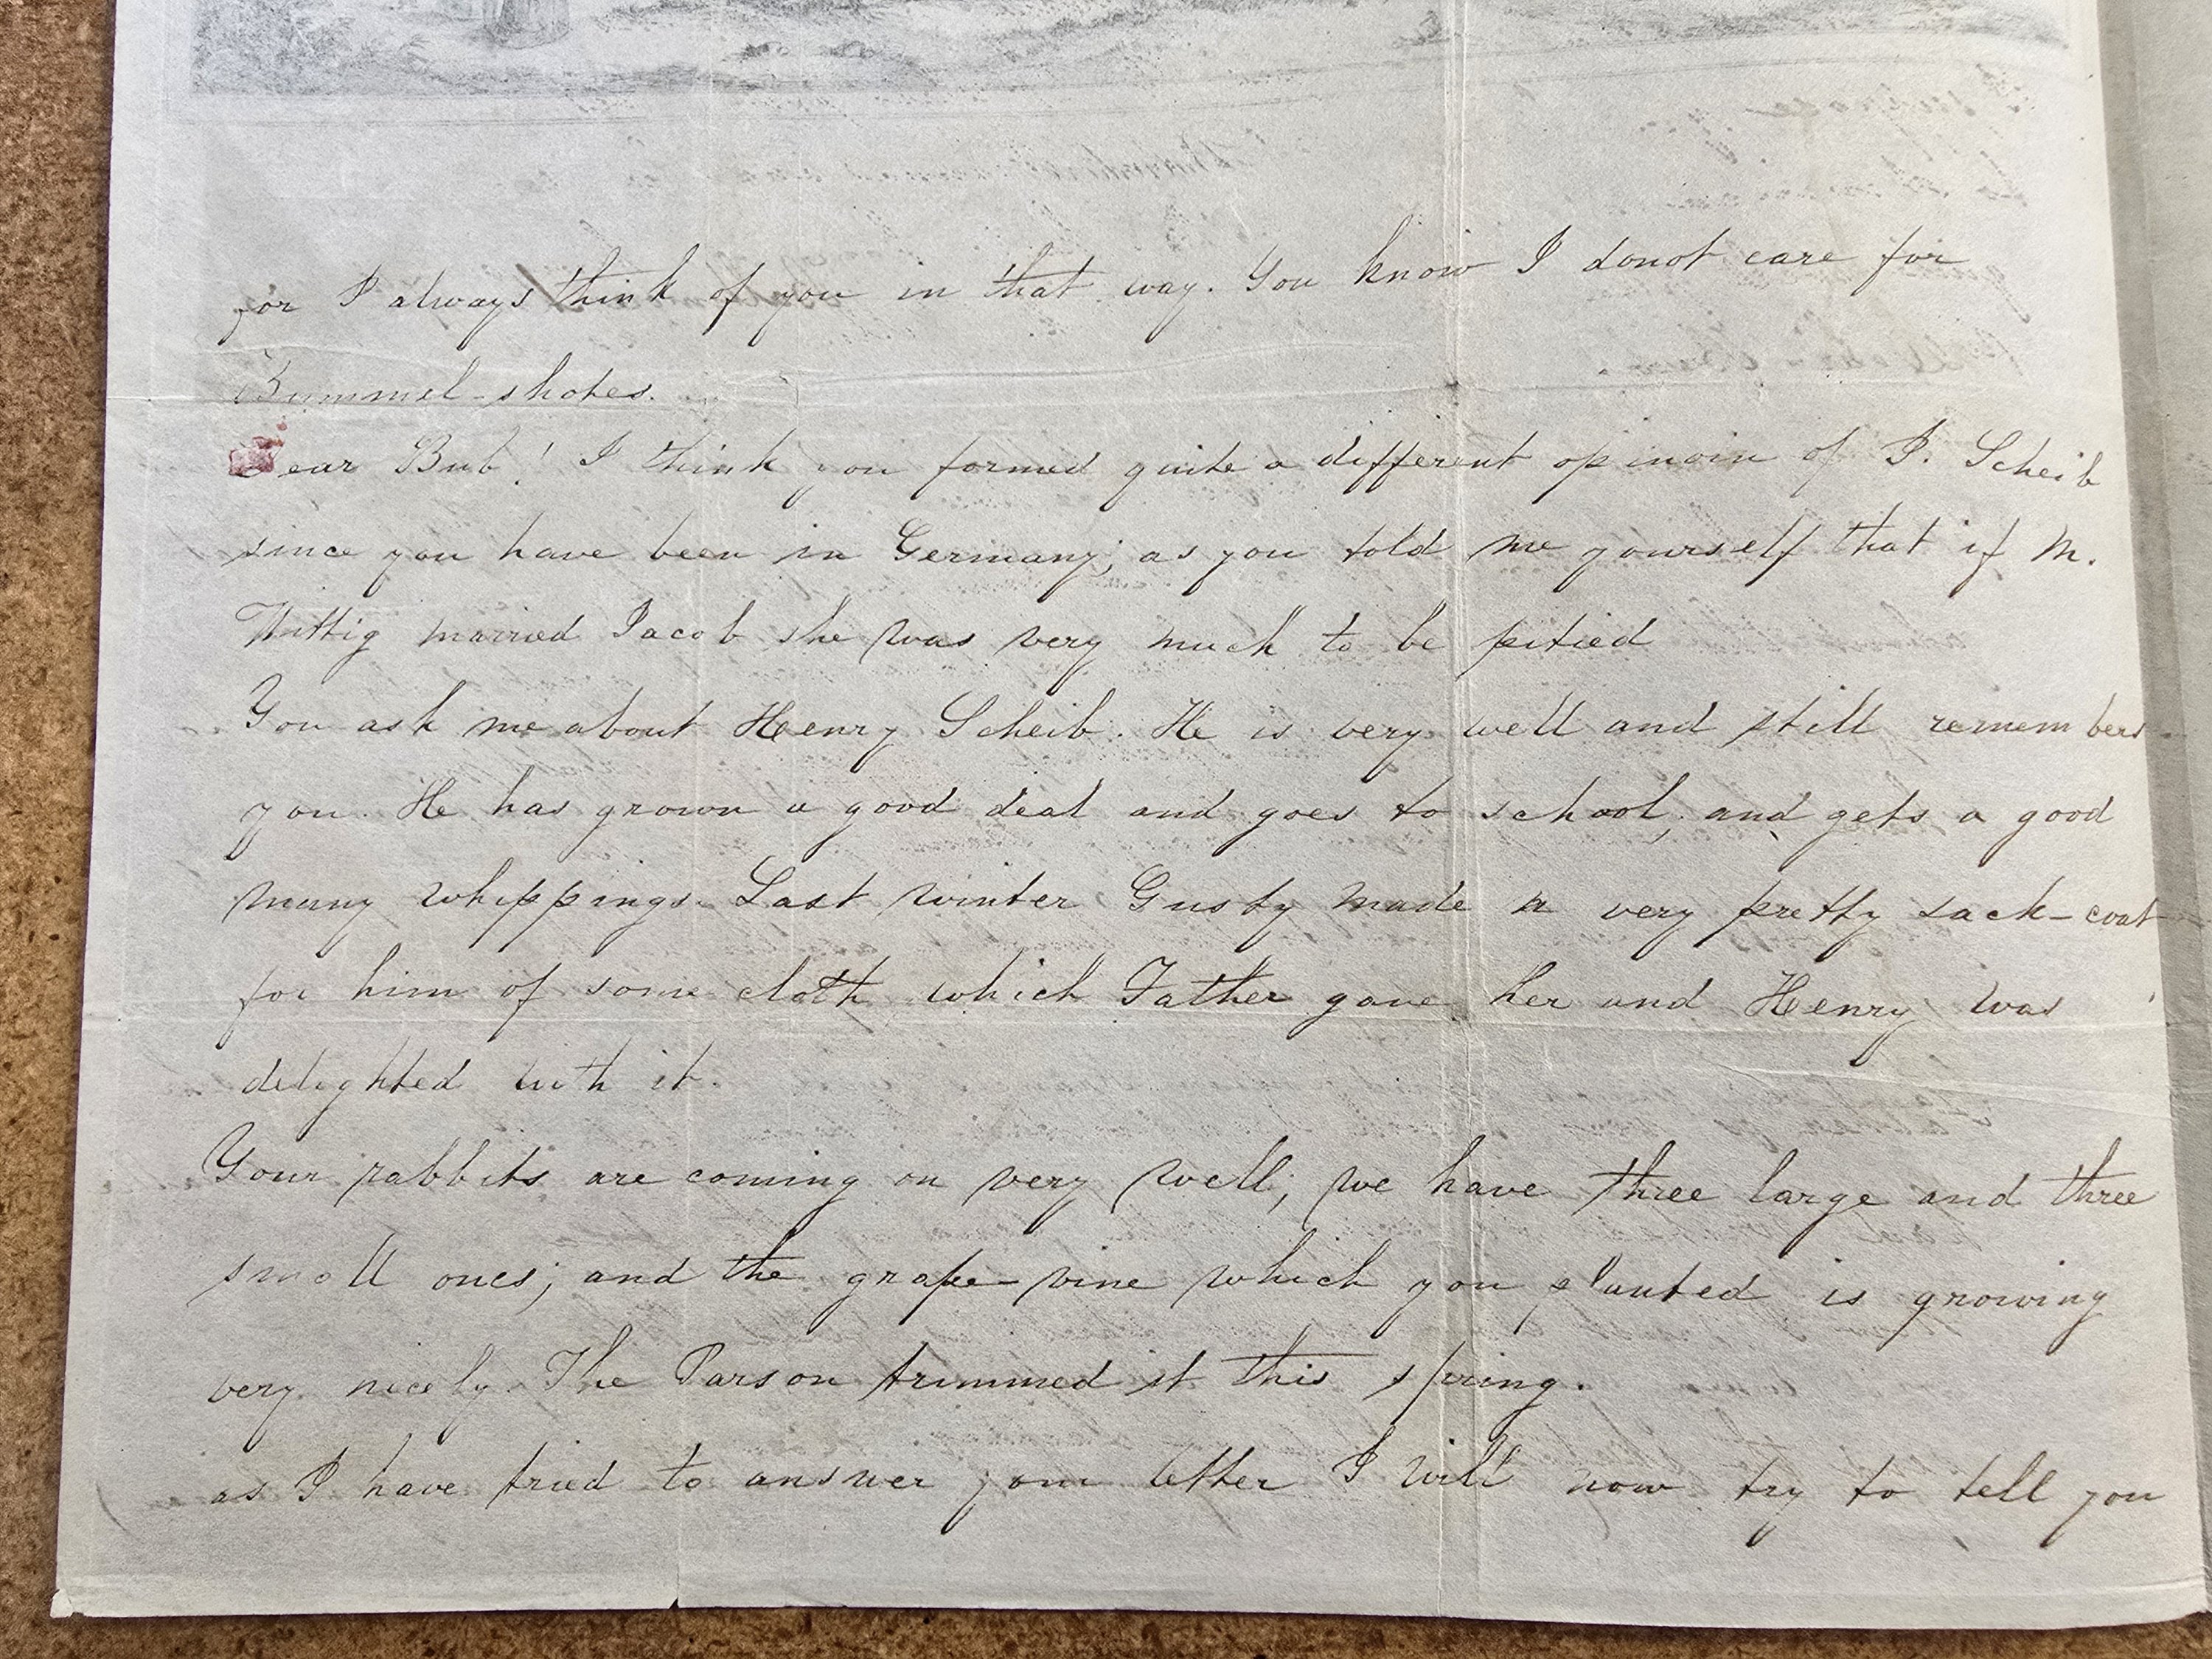 for I always think of you in that way. You know I donot care for
Bummel-shotes.
Dear Bub! I think you formed quite a different opinoin of J. Scheib
since you have been in Germany; as you told me yourself that if M.
Wittig married Jacob she was very much to be pitied
You ask me about Henry Scheib. He is very well and still remembers
you. He has grown a good deal and goes to school, and gets a good
many whippings. Last winter Gusty made a very pretty sack-coat
for him of some cloth which Father gave her and Henry was
delighted with it.
Your rabbits are coming on very well; we have three large and three
small ones; and the grape-vine which you planted is growing
very nicely. The Parson trimmed it this spring.
as I have tried to answer your letter I will now try to tell you